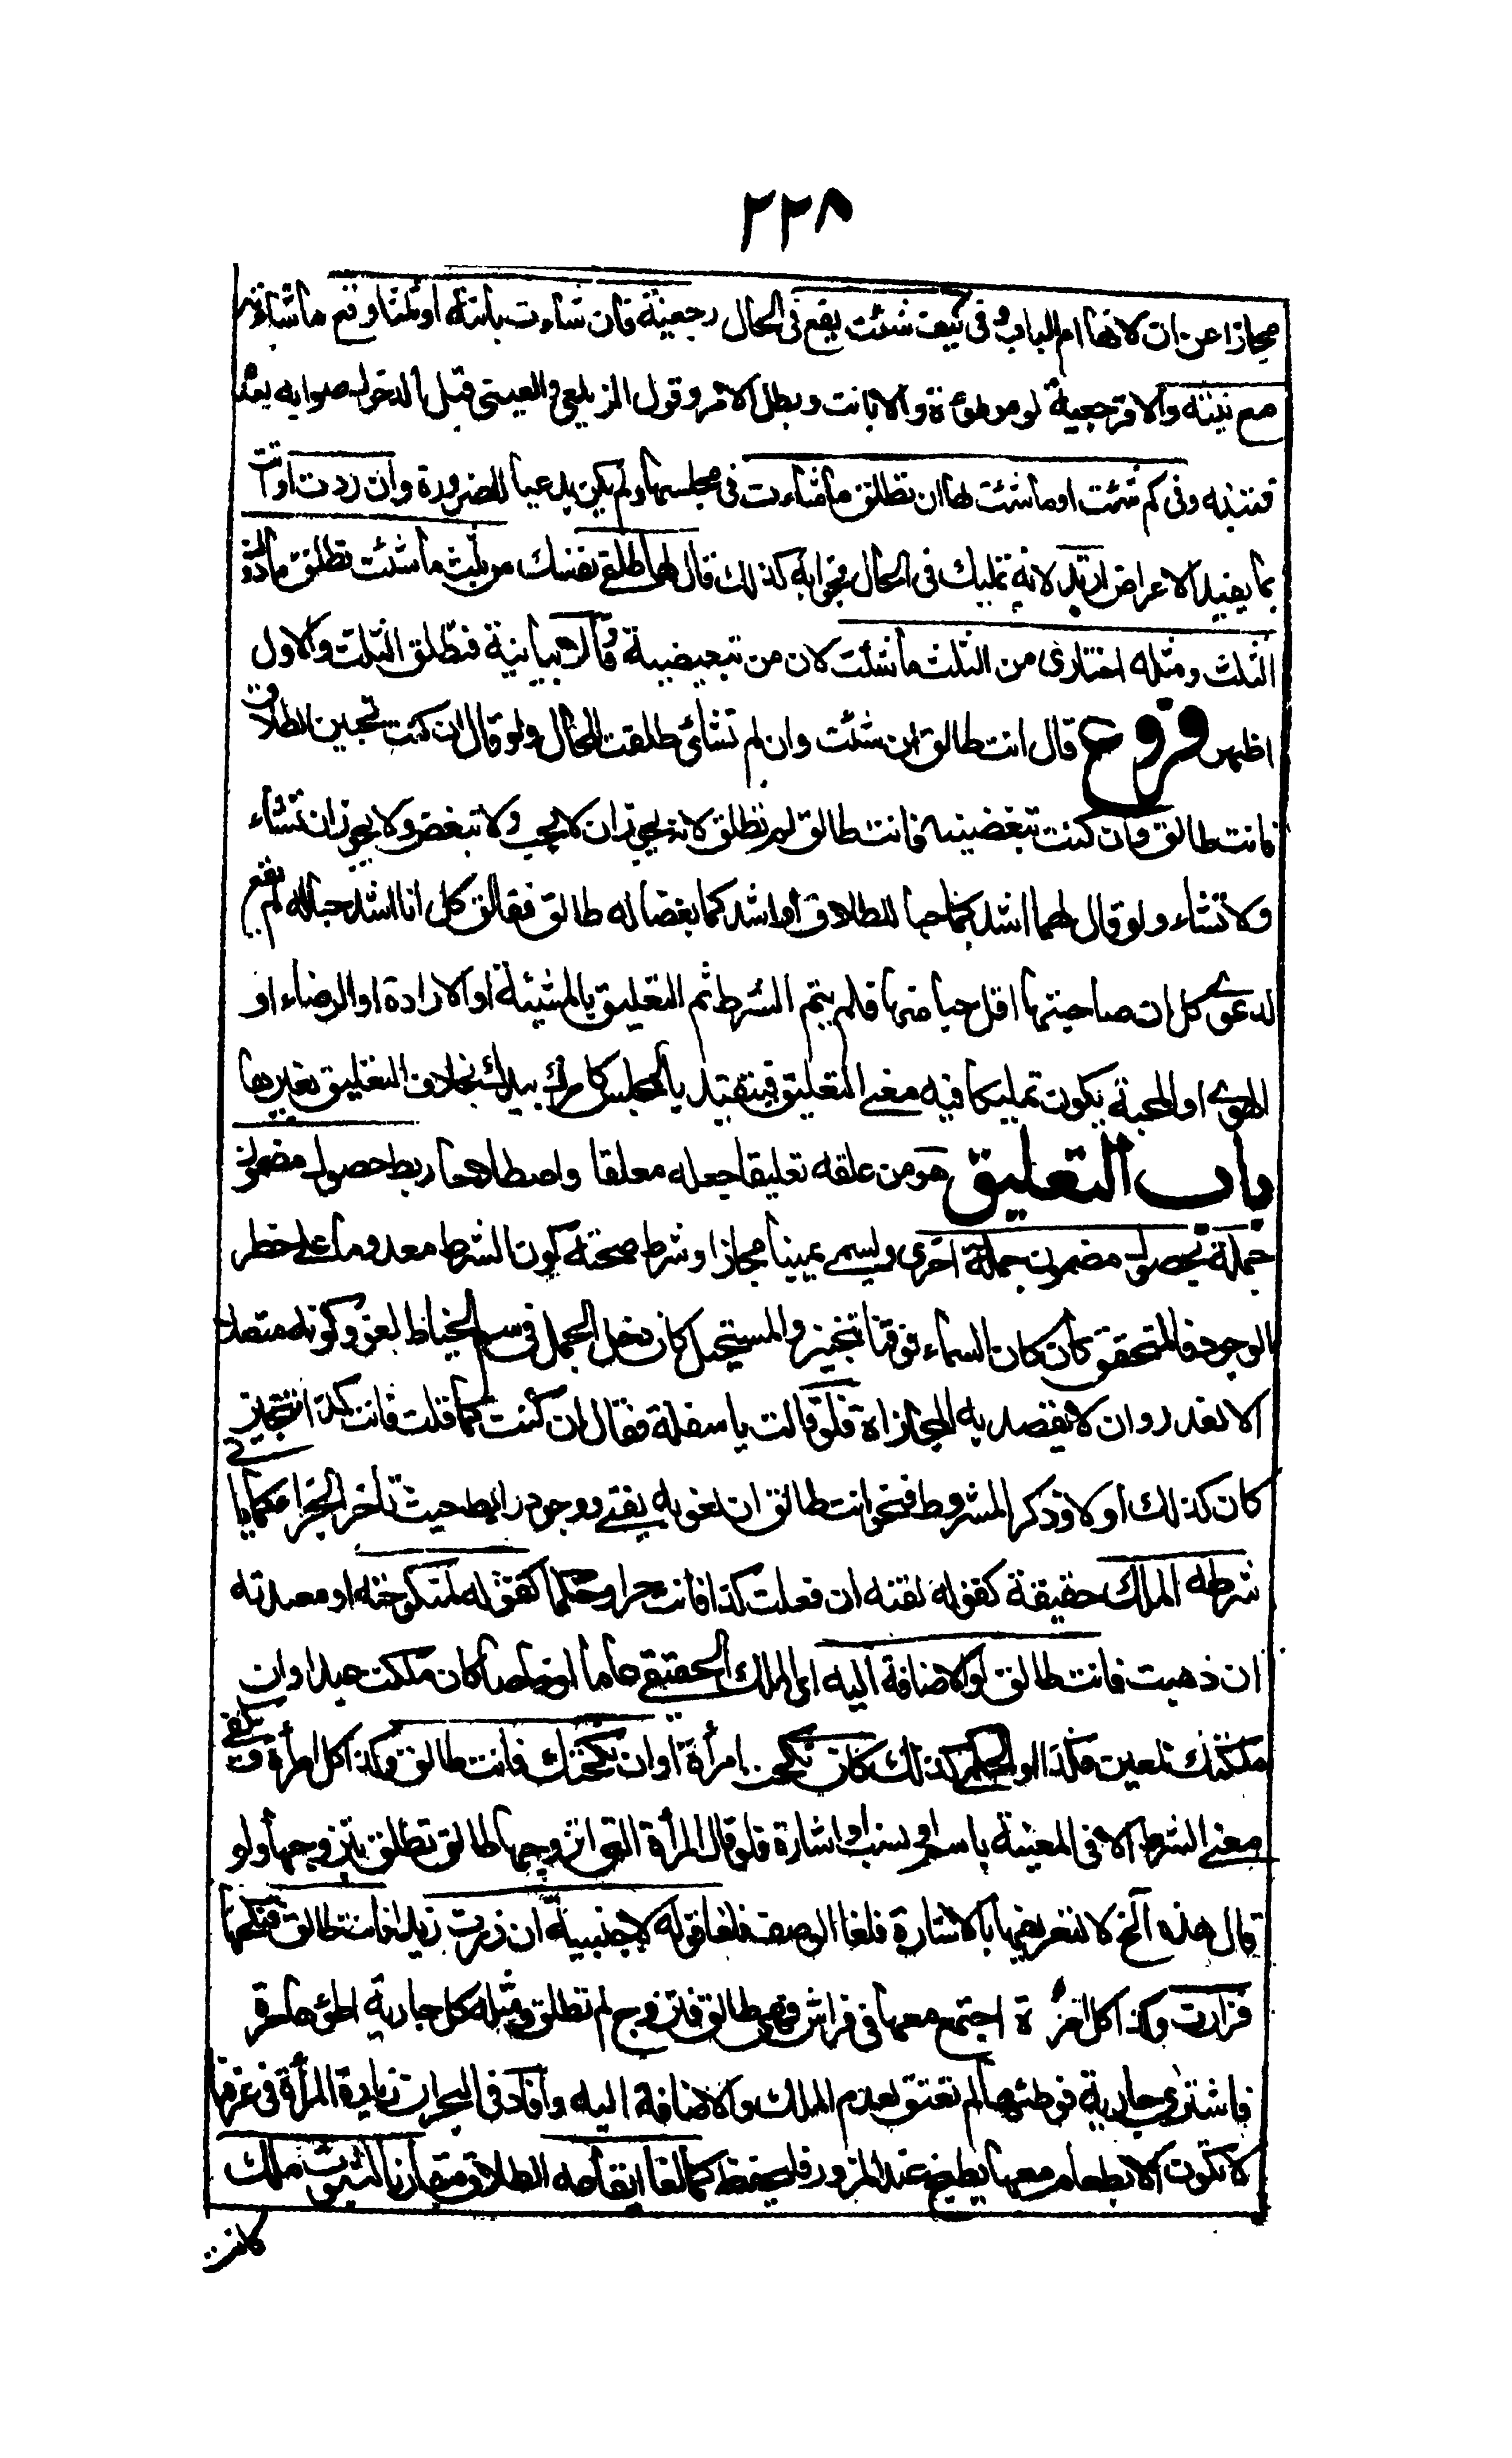 ٢٢٨
مجازا عن ان لانها ام الباب وفى كيف شئت يقع فى الحال رجعية فان شاءت بائنة او ثلثا وقع ما شاءته
مع نيته والا فرجعية لو موطؤة والا بانت وبطل الامر وقول الزيلعى والعينى قبل الدخول صوابه بعده
فتنبه وفى كم شئت او ما شئت لها ان تطلق ما شاءت فى مجلسها ولم يكن بدعيا للضرورة وان ردت او اتت
بما يفيد الاعراض ارتد لانه تمليك فى الحال فجوابه كذلك قال لها طلقى نفسك من ثلث ما شئت تطلق ما دون
الثلث ومثله اختارى من الثلث ما شئت لان من تبعيضية وقالا بيانية فتطلق الثلث والاول
اظهر فروع قال انت طالق ان شئت وان لم تشائى طلقت للحال ولو قال ان كنت تحبين الطلاق
فانت طالق وان كنت تبغضينه فانت طالق لم تطلق لانه يجوز ان لا تحب ولا تبغض ولا يجوز ان تشاء
ولا تشاء ولو قال لهما اشدكما حبا للطلاق او اشدكما بغضا له طالق فقالت كل انا اشد حبا له لم يقع
لدعوى كل ان صاحبتها اقل حبا منها فلم يتم الشرط ثم التعليق بالمشيئة او الارادة او الرضاء او
الهوى او المحبة يكون تمليكا فيه معنى التعليق فيتقيد بالمجلس كامرك بيدك بخلاف التعليق بغيرها
باب التعليق هو من علقه تعليقا جعله معلقا واصطلاحا ربط حصول مضمون
جملة بحصول مضمون جملة اخرى ويسمى يمينا مجازا وشرط صحته كون الشرط معدوما على خطر
الوجود فالمتحقق كان كان السماء فوقنا تنجيز والمستحيل كان دخل الجمل فى سم الخياط لغو وكونه متصلا
الا لعذر وان لا يقصد به المجازاة فلو قالت يا سفلة فقال ان كنت كما قلت فانت كذا تنجيز
كان كذلك اولا وذكر المشروط فنحو انت طالق ان لغو به يفتى ووجود رابط حيث تأخر الجزاء كما ياتى
شرطه الملك حقيقة كقوله لقنه ان فعلت كذا فانت حر او حكما كقوله لمنكوحته او معتدته
ان ذهبت فانت طالق او الاضافة اليه اى الملك الحقيقى عاما او خاصا كان ملكت عبدا او ان
ملكتك لمعين فكذا او الحكمى كذلك كان نكحت امرأة او ان نكحتك فانت طالق وكذا كل امرأة ويكفى
معنى الشرط الا فى المعينة باسم او نسب او اشارة فلو قال المرأة التى اتزوجها طالق تطلق بتزوجها ولو
قال هذه الخ لا لتعريفها بالاشارة فلغا الوصف فلغا قوله لاجنبية ان زرت زيدا فانت طالق فنكحها
فزارت وكذا كل امرأة اجتمع معها فى فراش فهى طالق فتزوج لم تطلق ومثله كل جارية اطؤها حرة
فاشترى جارية فوطئها لم تعتق لعدم الملك والاضافة اليه وافاد فى البحر ان زيادة المرأة فى عرفنا
لا تكون الا بطعام معها يطبخ عند المزور فليحفظ كما لغا ايقاعه الطلاق مقارنا لثبوت ملك